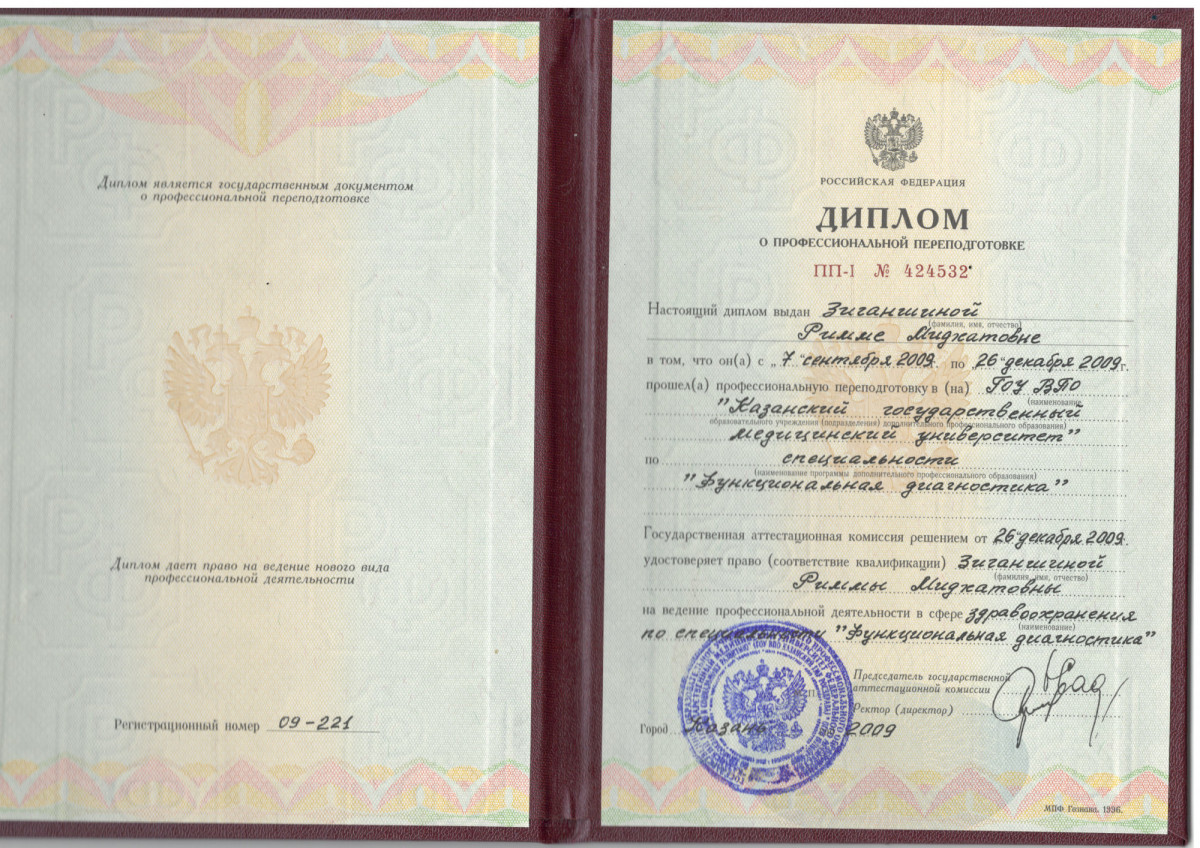 Диплом является государственным документом
о профессиональной переподготовке
Диплом дает право на ведение нового вида
профессиональной деятельности
Регистрационный номер 09-221
РОССИЙСКАЯ ФЕДЕРАЦИЯ
ДИПЛОМ
О ПРОФЕССИОНАЛЬНОЙ ПЕРЕПОДГОТОВКЕ
ПП-I № 424532
Настоящий диплом выдан Зиганшиной
(фамилия, имя, отчество)
Римме Мидхатовне
в том, что он(а) с „7“ сентября 2009. по „26“ декабря 2009г.
прошел(а) профессиональную переподготовку в (на) ГОУ ВПО
(наименование
"Казанский государственный
образовательного учреждения (подразделения) дополнительного профессионального образования)
медицинский университет"
по специальности
(наименование программы дополнительного профессионального образования)
"Функциональная диагностика"
Государственная аттестационная комиссия решением от 26 декабря 2009г.
удостоверяет право (соответствие квалификации) Зиганшиной
(фамилия, имя, отчество)
Риммы Мидхатовны
на ведение профессиональной деятельности в сфере здравоохранения
(наименование)
по специальности "Функциональная диагностика"
Председатель государственной
аттестационной комиссии
Ректор (директор)
Город Казань 2009
МПФ Гознака. 1996.